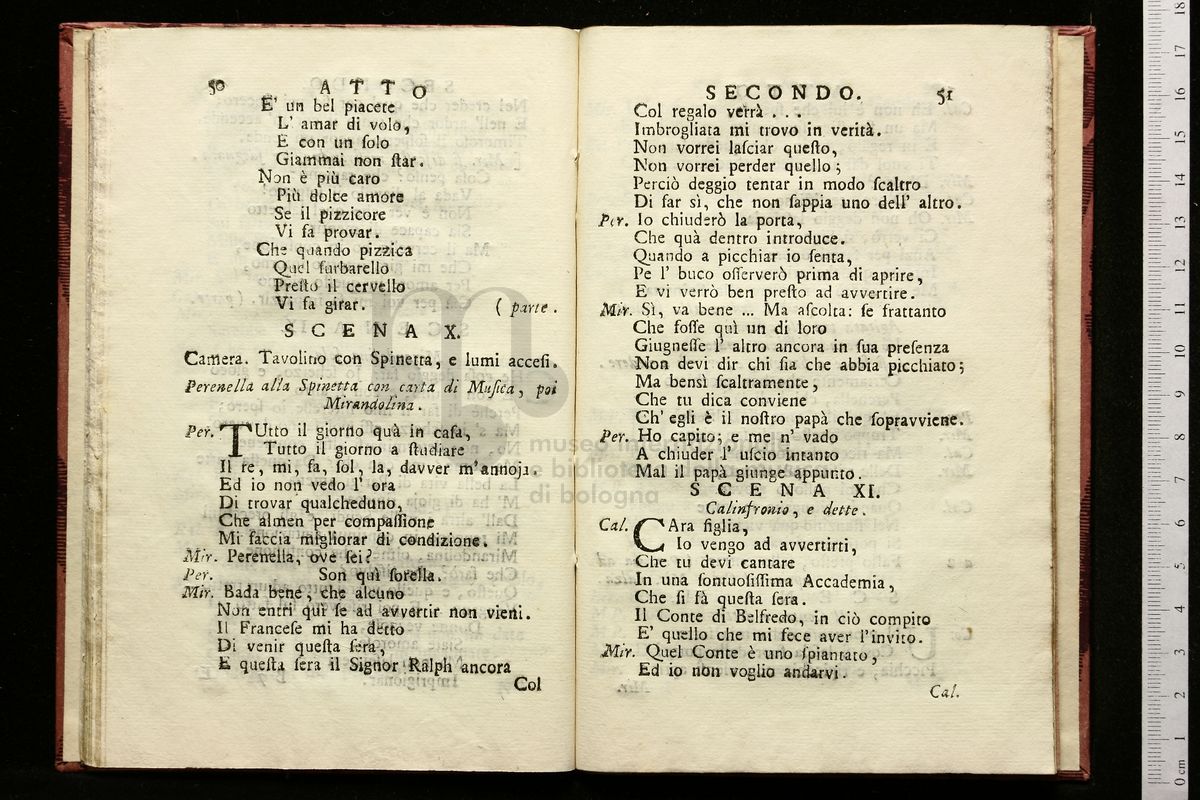 50 ATTO
E' un bel piacete
L' amar di volo,
E con un ſolo
Giammai non ſtar.
Non è più caro
Più dolce amore
Se il pizzicore
Vi fa provar.
Che quando pizzica
Quel furbarello
Preſto il cervello
Vi fa girar. ( parte.
SCENA X.
Camera. Tavolino con Spinetta, e lumi acceſi.
Perenella alla Spinetta con carta di Muſica, poi
Mirandolina.
Per. TUtto il giorno quà in caſa,
Tutto il giorno a ſtudiare
Il re, mi, fa, ſol, la, davver m'annoja.
Ed io non vedo l' ora
Di trovar qualcheduno,
Che almen per compaſſione
Mi faccia migliorar di condizione.
Mir. Perenella, ove ſei?
Per. Son quì ſorella.
Mir. Bada bene, che alcuno
Non entri quì ſe ad avvertir non vieni.
Il Franceſe mi ha detto
Di venir queſta ſera,
E queſta ſera il Signor Ralph ancora
Col
SECONDO. 51
Col regalo verrà . . .
Imbrogliata mi trovo in verità.
Non vorrei laſciar queſto,
Non vorrei perder quello;
Perciò deggio tentar in modo ſcaltro
Di far sì, che non ſappia uno dell' altro.
Per. Io chiuderò la porta,
Che quà dentro introduce.
Quando a picchiar io ſenta,
Pe l' buco oſſerverò prima di aprire,
E vi verrò ben preſto ad avvertire.
Mir. Sì, va bene ... Ma aſcolta: ſe frattanto
Che foſſe quì un di loro
Giugneſſe l' altro ancora in ſua preſenza
Non devi dir chi ſia che abbia picchiato;
Ma bensì ſcaltramente,
Che tu dica conviene
Ch' egli è il noſtro papà che ſopravviene.
Per. Ho capito; e me n' vado
A chiuder l' uſcio intanto
Mal il papà giunge appunto.
SCENA XI.
Calinfronio, e dette.
Cal. CAra figlia,
Io vengo ad avvertirti,
Che tu devi cantare
In una ſontuoſiſſima Accademia,
Che ſi fà queſta ſera.
Il Conte di Belfredo, in ciò compito
E' quello che mi fece aver l'invito.
Mir. Quel Conte è uno ſpiantato,
Ed io non voglio andarvi.
Cal.